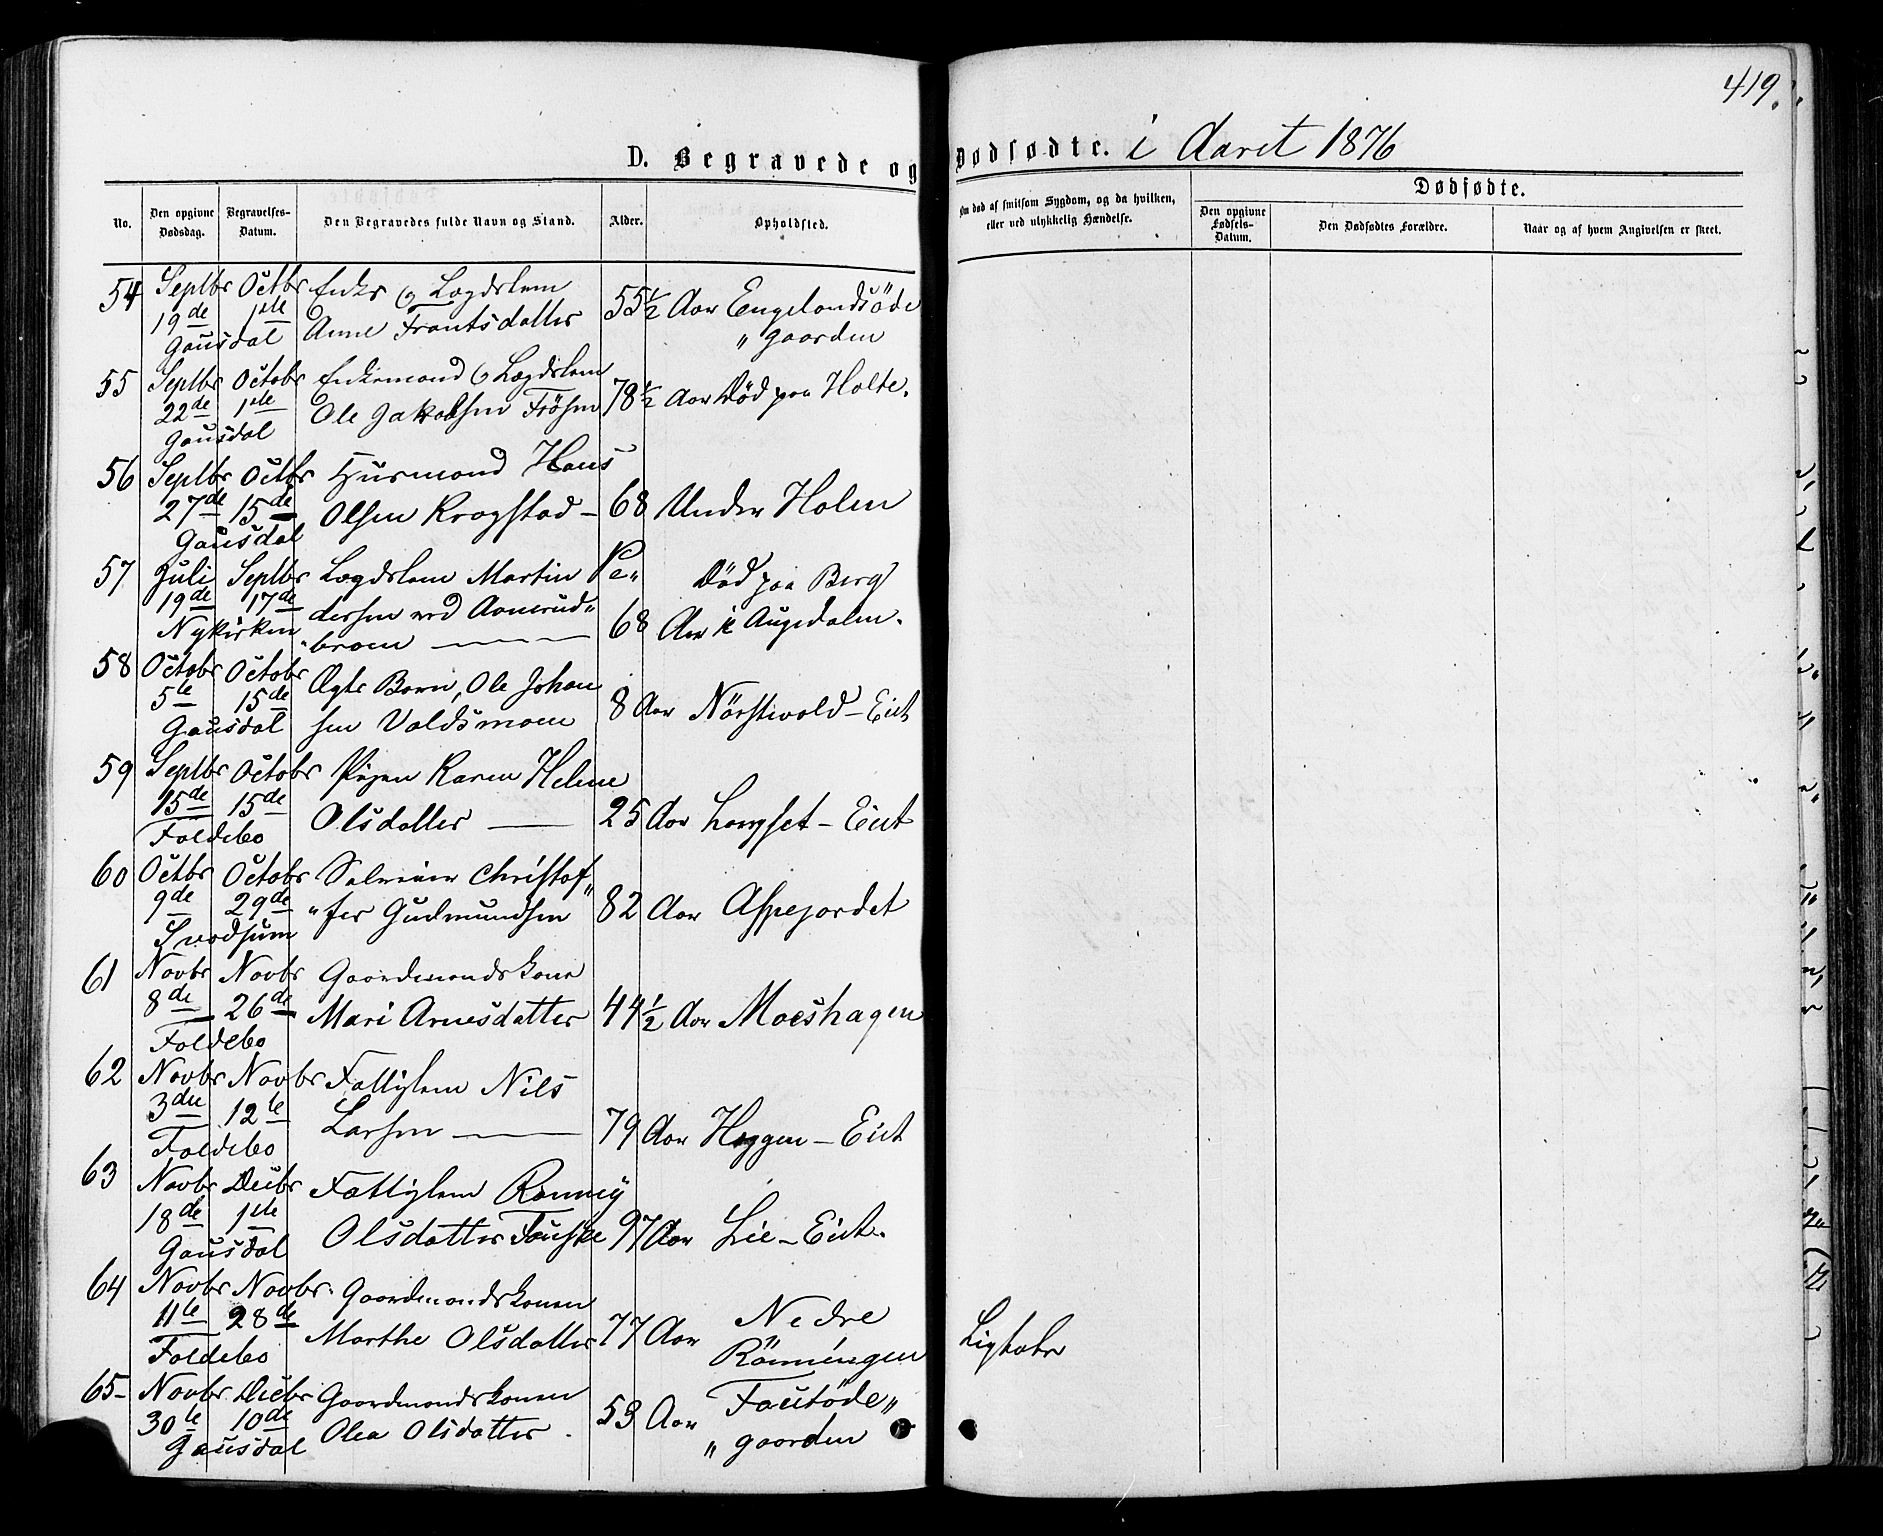 419.
D. Begravede og Dødfødte. i Aaret 1876
No.
Den opgivne Dødsdag.
Begravelses-Datum.
Den Begravedes fulde Navn og Stand.
Alder.
Opholdsted.
Om død af smitsom Sygdom, og da hvilken, eller ved ulykkelig Hændelse.
Dødfødte.
Den opgivne Fødsels-Datum.
Den Dødfødtes Forældre.
Naar og af hvem Angivelsen er skeet.
54 Septbr Octbr Enke og Lægdslem
19de 1ste Anne Frantsdatter 55½ Aar Engelandsöde
Gausdal „gaarden
55 Septbr Octobr Enkemand og Lægdslem
22de 1ste Ole Jakobsen Frösen 78½ Aar Död paa Holte.
Gausdal
56 Septbr Octbr Husmand Hans
27de 15de Olsen Kragstad – 68 Under Holen
Gausdal
57 Juli Septbr Lægdslem Martin Pe„ Död paa Berg
19de 17de dersen ved Aanerud„ 68 Aar i Augedalen.
Nykirken „braen
58 Octobr Octobr Ægte Barn, Ole Johan
5te 15de sen Valdsmoen 8 Aar Nörstevold – Eiet
Gausdal
59 Septbr Octobr Pigen Karen Helene
15de 15de Olsdatter — 25 Aar Langset – Eiet
Foldebo
60 Octbr Octobr Selveier Christof„
9de 29de „fer Gudmundsen 82 Aar Aspejordet
Svadsum
61 Novbr Novbr Gaardmandskone
8de 26de Mari Arnesdatter 44½ Aar Moeshagen
Foldebo
62 Novbr Novbr Fattiglem Nils
3die 12te Larsen — 79 Aar Heggen – Eiet
Foldebo
63 Novbr Decbr Fattiglem Ronney
18de 1ste Olsdatter Fauske 97 Aar Lie – Eiet.
Gausdal
64 Novbr Novbr. Gaardmandskonen
11te 28de Marthe Olsdatter 77 Aar Nedre
Foldebo Rönningen Ligtale
65 – Novbr Decbr Gaardmandskonen
30te 10de Olea Olsdatter. 53 Aar Fautöde„
Gausdal „gaarden